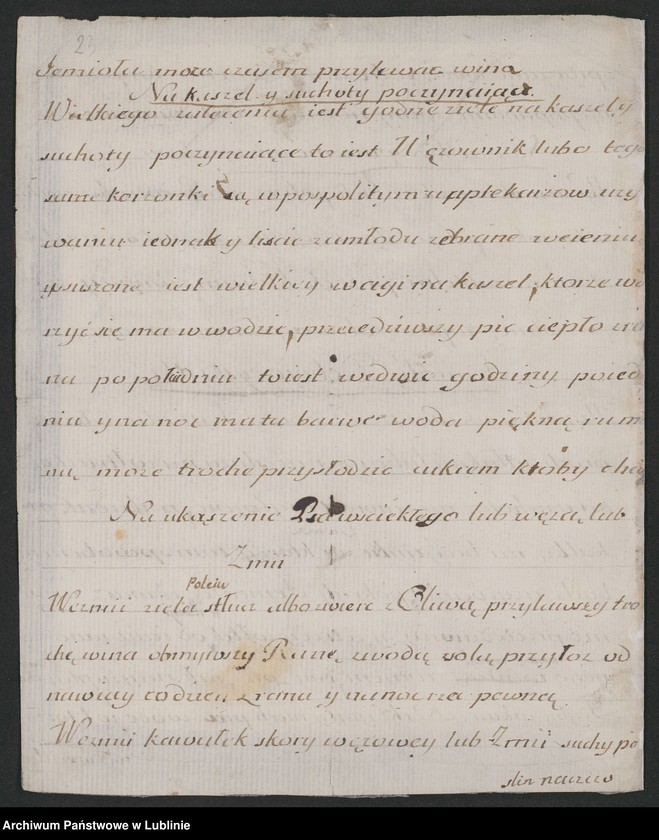 23
Jemioła moze czasem przylewac wina
Na kaszel y suchoty poczynaiące.
Wielkiego zalecenia iest godne ziele na kaszel y
suchoty poczynaiące to iest Wężownik lubo tego
same korzonki są w pospolitym u aptekarzow uzy
waniu iednak y liscie zamłodu zebrane w cieniu
ysuszone iest wielkiey wagi na kaszel, ktore wa
rzyć się ma w wodzie, przecedziwszy pic ciepło z ra
na po południu to iest we dwie godziny po ied
niu y na noc ma ta barwe woda piękną rum
ną moze troche przysłodzic cukrem ktoby chc
Na ukąszenie Psa wsciekłego lub węza, lub
Zmii
Poleiu
Wezmii ziela stłucz albo zwierc z Oliwą przylawszy tro
chę wina obmywszy Ranę z wodą solą przyłoz od
nawiay co dzien z rana y na noc rzecz pewna
Wezmii kawałek skory węzowey lub Zmii suchy po
Archiwum Państwowe w Lublinie